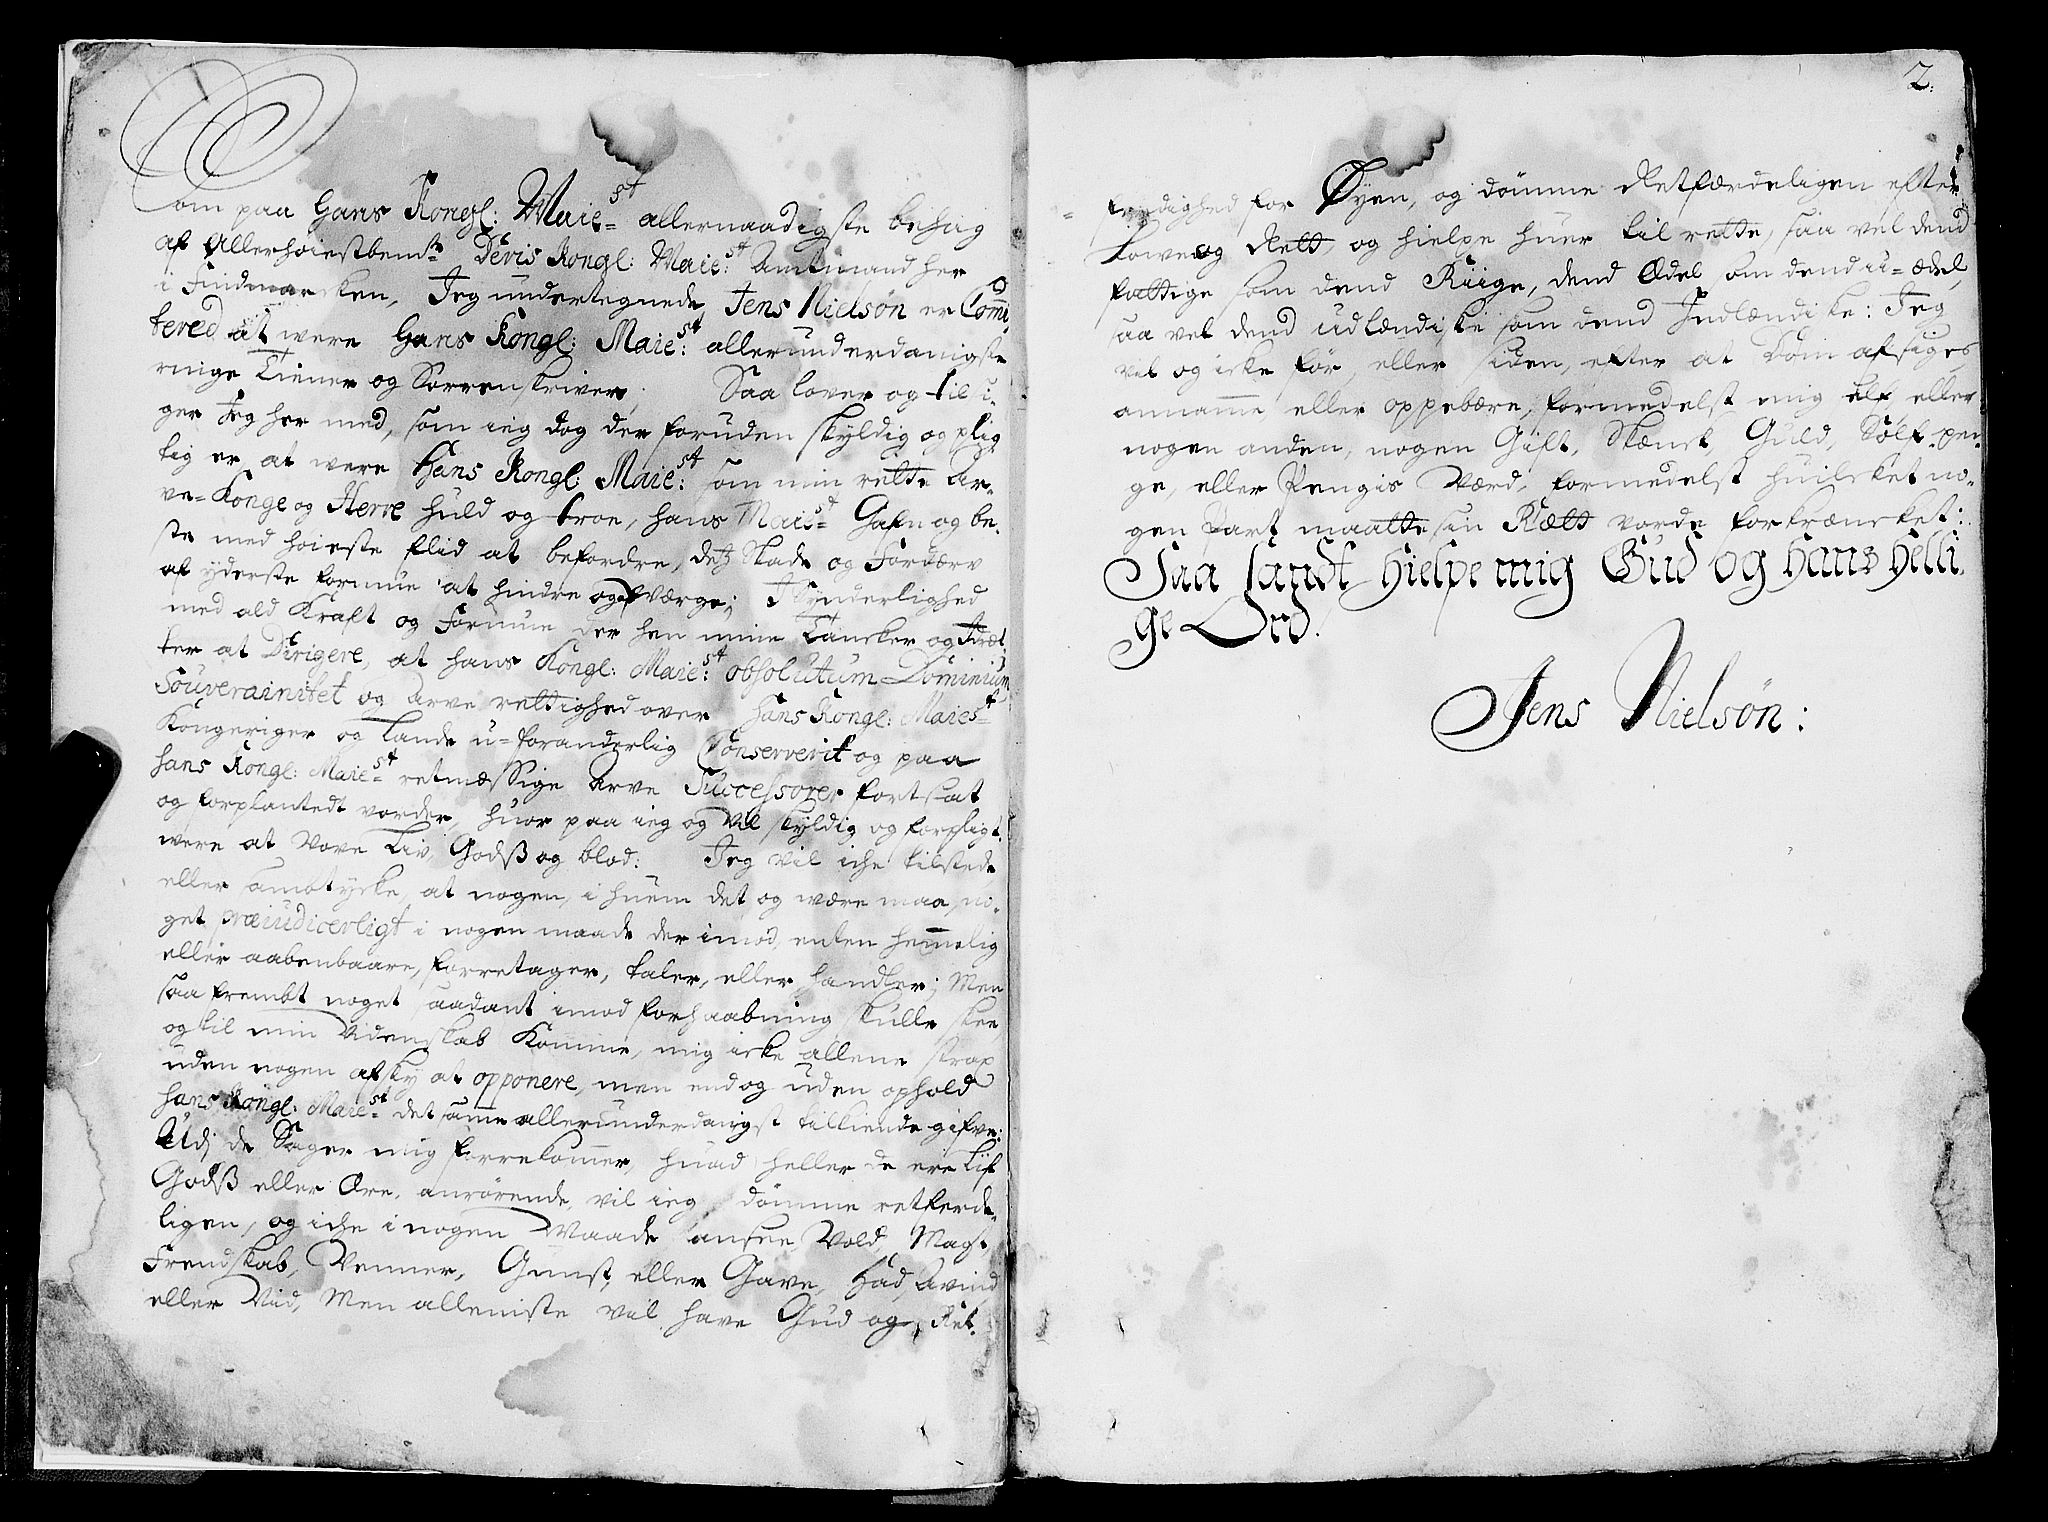 Som paa Hans Kongl: Maiest: allernaadigste behag
af Allerhøiestbemte Deris Kongl: Maiest: Amtmand her
i Findmarcken, Jeg undertegnede Jens Nielsøn er Com̃i,
tered at were Hans Kongl: Maiest: allerunderdanigste
ringe Tiener og Sorrenskriver, Saa lover og tilsi,
ger Jeg her med, som ieg dog der foruden skyldig og plig
tig er, at were Hans Kongl: Maiest: som min rette Ar,
ve-Konge og Herre huld og troe, hans Maiest Gafn og be,
ste med høieste flid at befordre, dets Skade og Fordærv
af yderste formue at hindre og afværge; I Synderlighed
med ald Kraft og Formue der hen mine Tancker og Idræt,
ter at Dirigere, at hans Kongl: Maiest: absolutum Dominium
Souverainitet og Arve rettighed over Hans Kongl: Maiest
Kongeriger og Lande u-foranderlig Conserverit og paa
hans Kongl: Maiest retmæssige Arve Successorer fortsat
og forplantedt vorder, huor paa ieg og vil skyldig og forpligt,
were at vove Liv, Godß og blod: Jeg vil iche tilstede
eller samtycke, at nogen, i huem det og være maa, no,
get præiudicerligt i nogen maade der imod, enten hem̃elig
eller aabenbaare, forretager, taler, eller handler; Men
saa frembt noget saadant imod forhaabning skulle skee,
og til min Videnskab Komme, mig icke allene strax
uden nogen afsky at opponere, men end og uden ophold
Hans Kongl: Maiest det sam̃e allerunderdanigst tilkiende gifve:
Udj de Sager mig forrekom̃er, huad heller de ere Liif
Godß eller Ære, anrørende, vil ieg dømme retferde,
ligen, og iche i nogen Maade ansee Vold, Magt,
Frendskab, Venner, Gunst, eller Gave, Had, Avind
eller Nid, Men alleniste vil have Gud og Ret,
2.
ferdighed for Øyen, og dømme Retfærdeligen efter
Lowen og Rett, og hielpe huer til rette, saa vel dend
fattige som dend Riige, dend Ædel som dend u-ædel,
saa vel dend udlændiske som dend Indlændiske: Jeg
vil og icke før, eller siden, efter at Dom afsiges
annam̃e eller oppebære, formedelst mig self eller
nogen anden, nogen Gift, Skænck, Guld, Sølf, pen,
ge, eller Pengis Værd, formedelst huilcket no,
gen Part maatte sin Rætt vorde forkræncket:
Saa sandt hielpe mig Gud og Hans Helli,
ge Ord.
Jens Nielsøn: